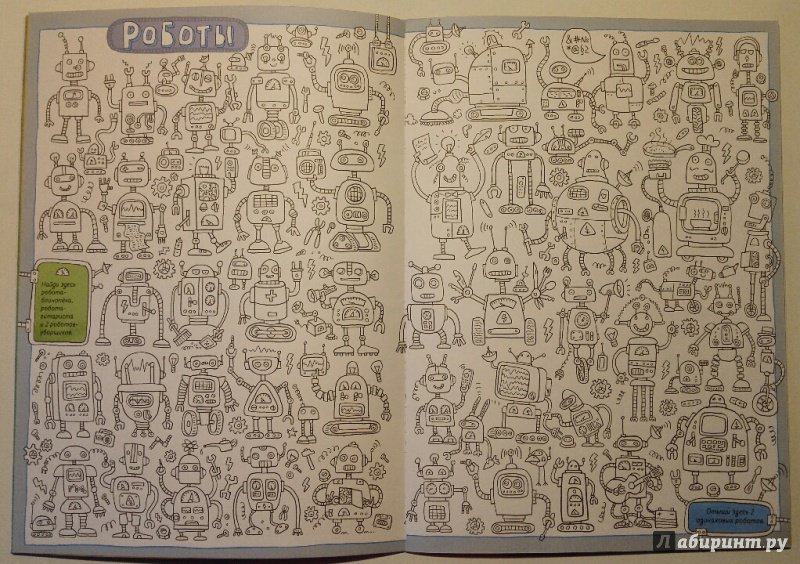 РОБОТЫ
&#№
*@§?
Найди здесь
робота-
блинопёка,
робота-
гитариста
и 2 роботов-
уборщиков.
Отыщи здесь 2
одинаковых роботов.
Лабиринт.ру